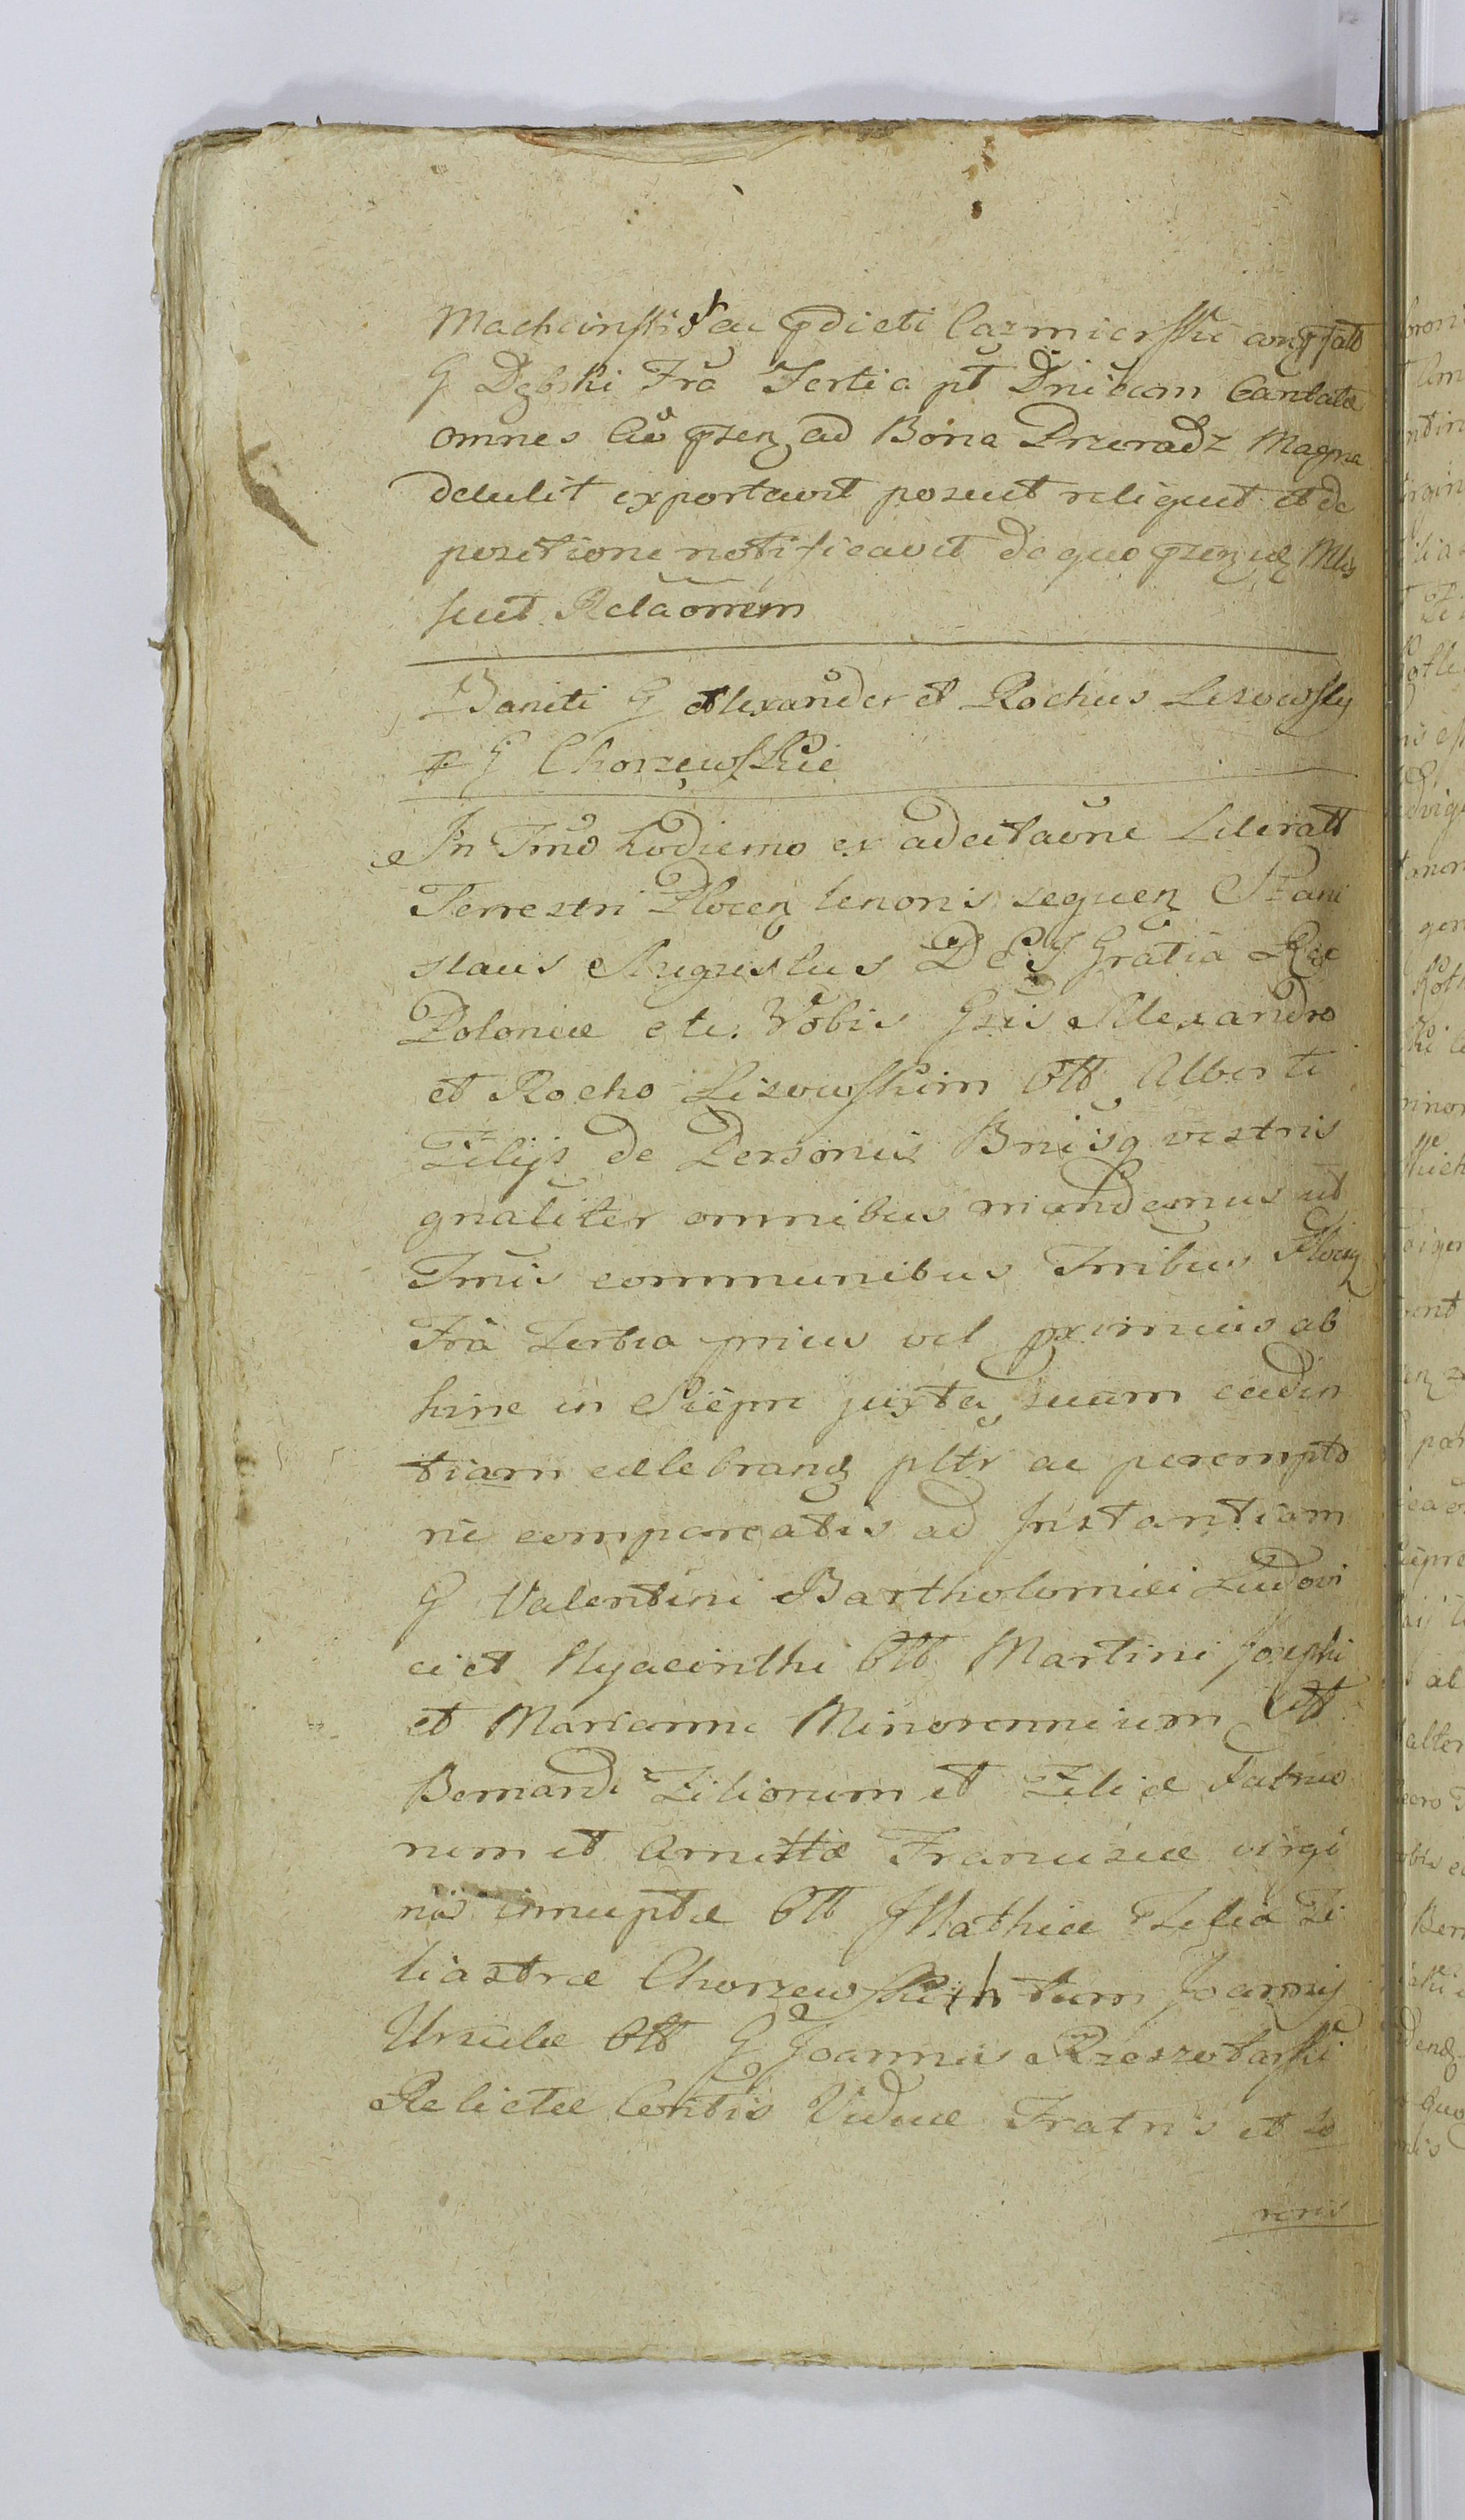 Machcinski ac pdicti Cazmierski
G Dębski Fra Tertia pt Dnicam Cantate
omnes ad Bona Przeradz Magna
detulit exportavit posuit reliquit et de
positione notificavit de quo
fecit Relaonem
Baniti G Alexander et Rochus Lisowscy
p G Chorzewskie
In Tmo hodierno ex adcitaone Literatt
Terrestri Plocen tenoris sequen Stani
slaus Augustus DEI Gratia Rex
Poloniæ etc. Vobis Gsis Alexandro
et Rocho Lisowskim Ott Alberti
Filijs de Personis Bnisq vestris
gnaliter omnibus mandamus ut
Tmis communibus Tribus Plocen
Fra Tertia prius vel proximius ab
hinc in Sierpc juxta suam cadin
tiam celebrand pltr ac perempto
rie compareatis ad Instantiam
G Valentini Bartholomæi Ludovi
ci et Hyacinthi Ott Martini Josephi
et Marianne Minorennium Ott
Bernardi Filiorum et Filiæ Patruo
rum et Amittæ Franciscæ virgi
nis innuptæ Ott Mathiæ Filia Fi
liastræ Chorzewskich tum Joannis
Ursulæ Ott G Joannis Rzeszotarski
Relictæ Contis Viduæ Fratris et So
roris